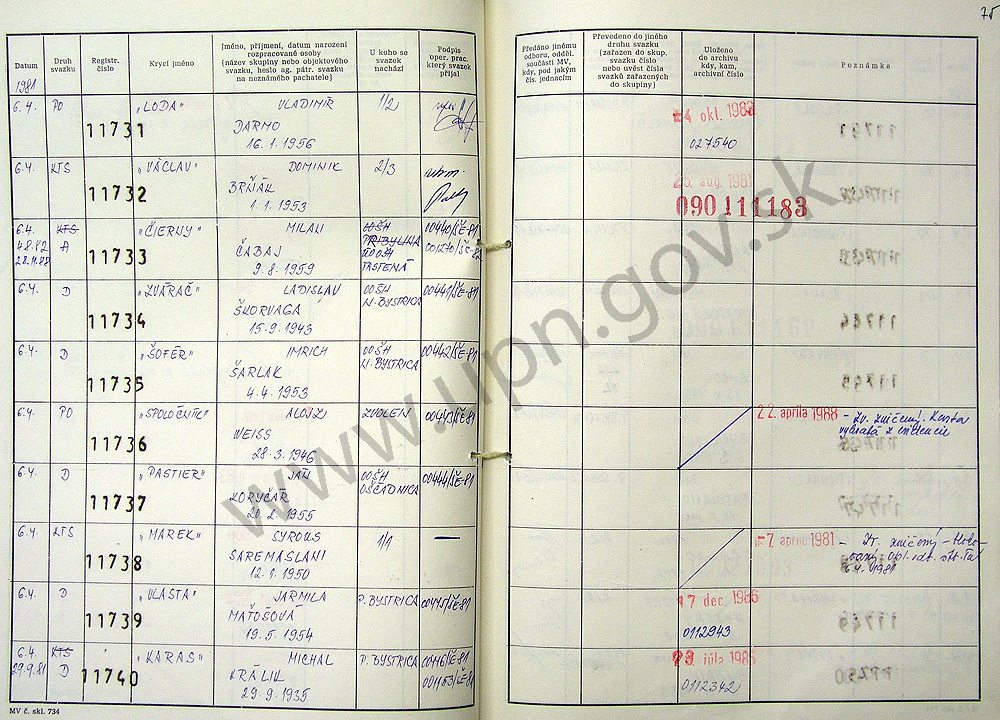 75
Datum
1981
Druh
svazku
Registr.
číslo
Krycí jméno
Jméno, příjmení, datum narození
rozpracované osoby
(název skupiny nebo objektového
svazku, heslo ag. pátr. svazku
na neznámého pachatele)
U koho se
svazek
nachází
Podpis
oper. prac.
který svazek
přijal
Předáno jinému
odboru, odděl.
součásti MV,
kdy, pod jakým
čís. jednacím
Převedeno do jiného
druhu svazku
(zařazen do skup.
svazku číslo
nebo uvést čísla
svazků zařazených
do skupiny)
Uloženo
do archivu
kdy, kam,
archivní číslo
Poznámka
6.4. PO 11731 "LODA" VLADIMÍR 1/2
DARMO
16.1.1956
okt. 1983
027540
6.4. KTS 11732 "VÁCLAV" DOMINIK 2/3
BRŇÁK
1.1.1953
25. aug. 1981
090111183
6.4. KTS 11733 "ČIERNY" MILAN OOŠH 00440/ŠE-81
4.8.82 A ČABAJ PRIBYLINA
9.8.1959 TRSTENÁ
6.4. D 11734 "ZVÁRAČ" LADISLAV OOŠH 00441/ŠE-81
ŠKORVAGA N. BYSTRICA
15.9.1943
6.4. D 11735 "ŠOFÉR" IMRICH OOŠH 00442/ŠE-81
ŠARLAK N. BYSTRICA
4.4.1953
6.4. PO 11736 "SPOLOČNÍK" ALOJZ ZVOLEN 00443/ŠE-81
WEISS
28.3.1946
22. apríla 1988 - Zv. zničený. Karta
vybratá z evidencie
6.4. D 11737 "PASTIER" JÁN OOŠH 00444/ŠE-81
KORYČÁR OŠČADNICA
20.2.1955
6.4. KTS 11738 "MAREK" SYROUS 1/1 —
SAREMASLANI
12.1.1950
-7. apríla 1981 - zničený
6.4. 1981
6.4. D 11739 "VLASTA" JARMILA P. BYSTRICA 00445/ŠE-81
MAŤOŠOVÁ
19.5.1954
17 dec. 1986
0112943
6.4. KTS 11740 "KARAS" MICHAL P. BYSTRICA 00446/ŠE-81
29.9.81 D KRÁLIK 001153/ŠE-81
29.9.1935
júla 1986
0112342
MV č. skl. 734
www.upn.gov.sk